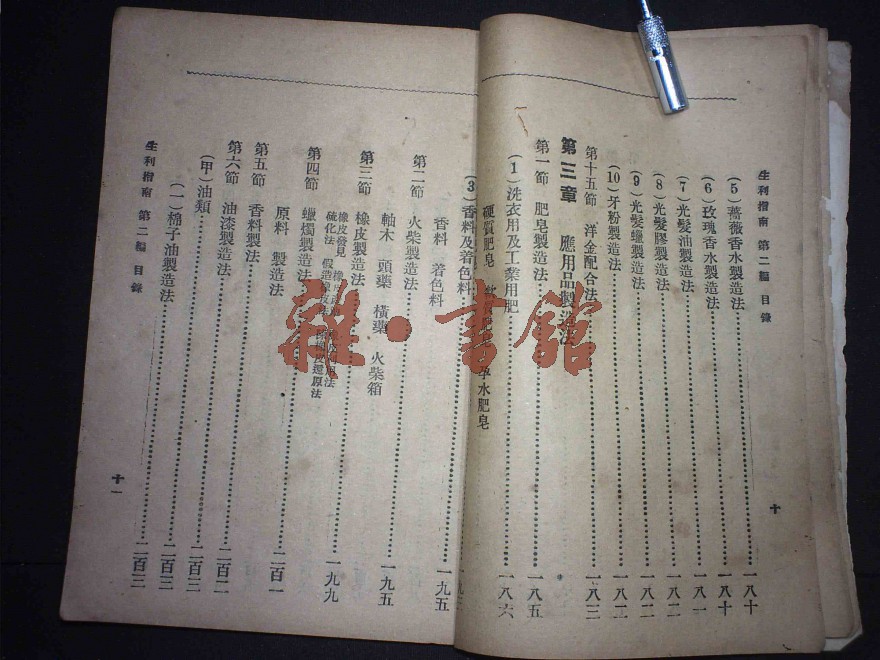 生利指南 第二編 目錄
十
(5)薔薇香水製造法 一八十
(6)玫瑰香水製造法 一八十
(7)光髮油製造法 一八一
(8)光髮膠製造法 一八二
(9)光髮蠟製造法 一八二
(10)牙粉製造法 一八二
第十五節 洋金配合法 一八三
第三章 應用品製造法
第一節 肥皂製造法 一八五
(1)洗衣用及工業用肥 一八六
硬質肥皂 水肥皂
(3)香料及着色料
香料 着色料 一九五
第二節 火柴製造法 一九五
軸木 頭藥 橫藥 火柴箱
第三節 橡皮製造法 一九九
橡皮發見
硫化法 還原法
第四節 蠟燭製造法
原料 製造法 二百一
第五節 香料製法
第六節 油漆製造法 二百二
(甲)油類 二百三
(一)棉子油製造法 二百三
二百三
生利指南 第二編 目錄
十一
雜·書館